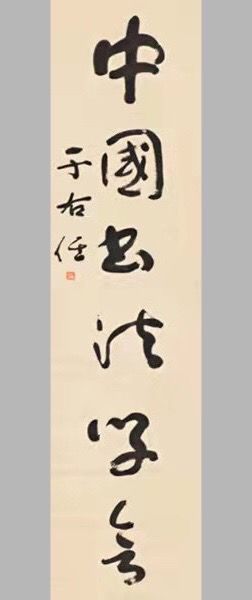 中國書法學會
于右任